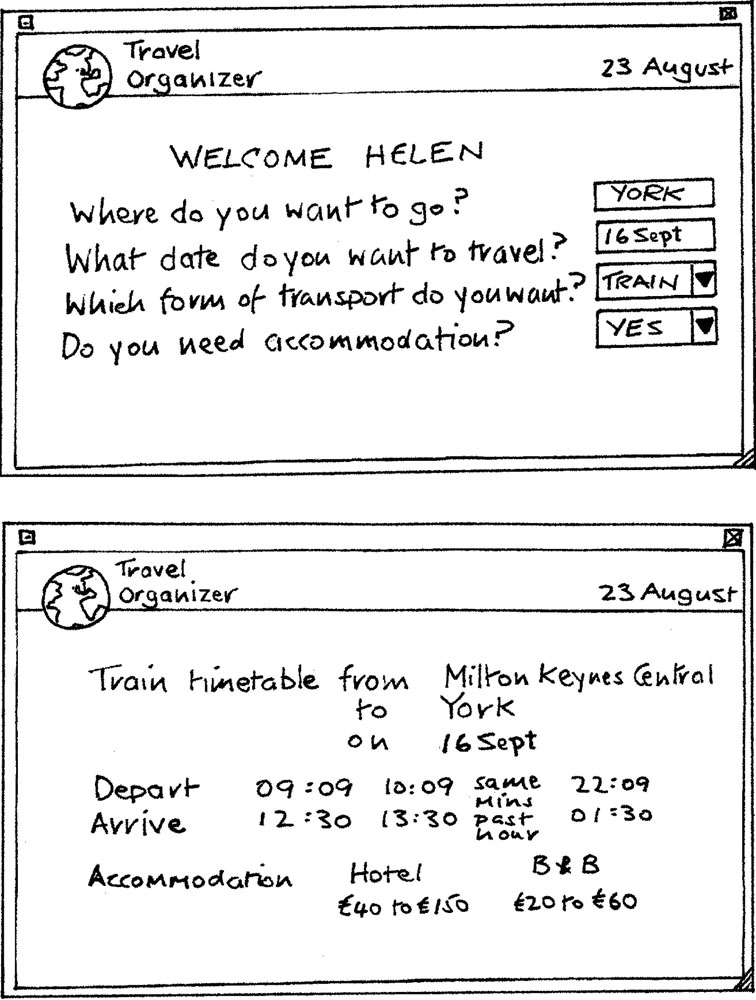 Travel
Organizer
23 August
WELCOME HELEN
Where do you want to go? YORK
What date do you want to travel? 16 Sept
Which form of transport do you want? TRAIN
Do you need accommodation? YES
Travel
Organizer
23 August
Train timetable from Milton Keynes Central
to York
on 16 Sept
Depart 09:09 10:09 same mins past hour 22:09
Arrive 12:30 13:30 01:30
Accommodation Hotel B & B
£40 to £150 £20 to £60